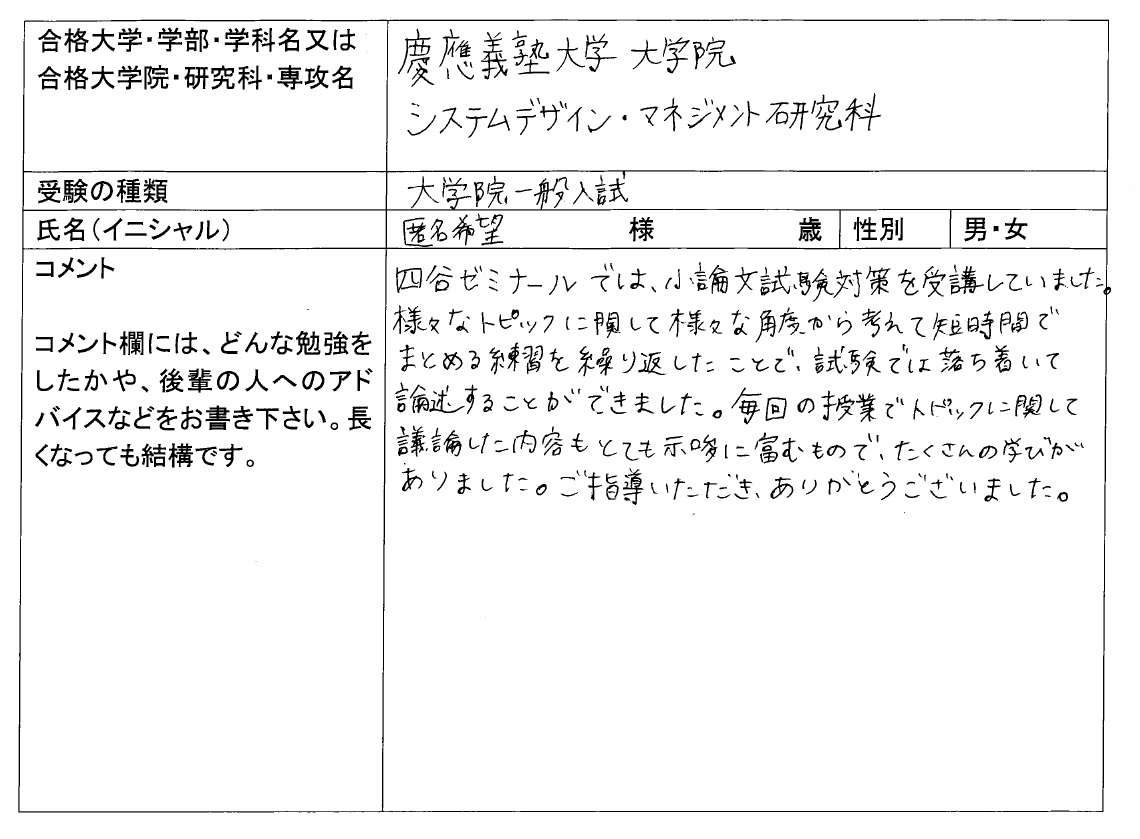 合格大学・学部・学科名又は
合格大学院・研究科・専攻名
慶應義塾大学 大学院
システムデザイン・マネジメント研究科
受験の種類
大学院一般入試
氏名(イニシャル)
匿名希望 様 歳 性別 男・女
コメント
コメント欄には、どんな勉強を
したかや、後輩の人へのアド
バイスなどをお書き下さい。長
くなっても結構です。
四谷ゼミナールでは、小論文試験対策を受講していました。
様々なトピックに関して様々な角度から考えて短時間で
まとめる練習を繰り返したことで、試験では落ち着いて
論述することができました。毎回の授業でトピックに関して
議論した内容もとても示唆に富むもので、たくさんの学びが
ありました。ご指導いただき、ありがとうございました。